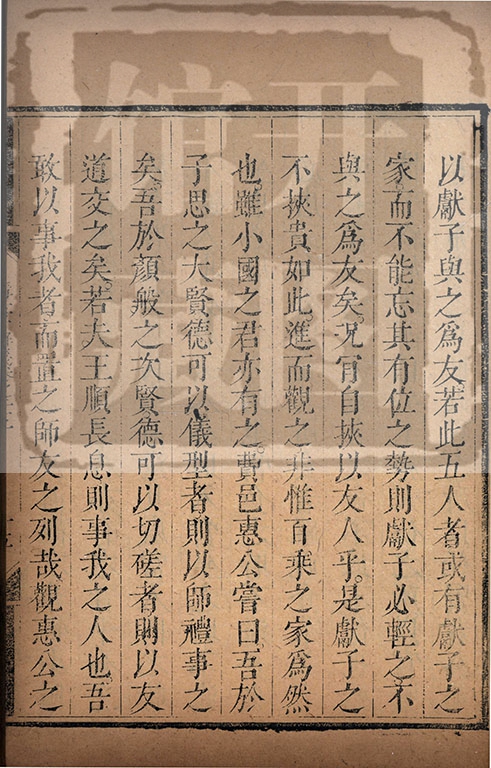 以獻子與之爲友若此五人者或有獻子之
家而不能忘其有位之勢則獻子必輕之不
與之爲友矣。況肯自挾以友人乎。是獻子之
不挾貴如此。進而觀之非惟百乘之家爲然
也。雖小國之君亦有之。費邑惠公嘗曰。吾於
子思之大賢德可以儀型者則以師禮事之
矣。吾於顏般之次賢德可以切磋者則以友
道交之矣。若夫王順長息則事我之人也。吾
敢以事我者而置之師友之列哉觀惠公之